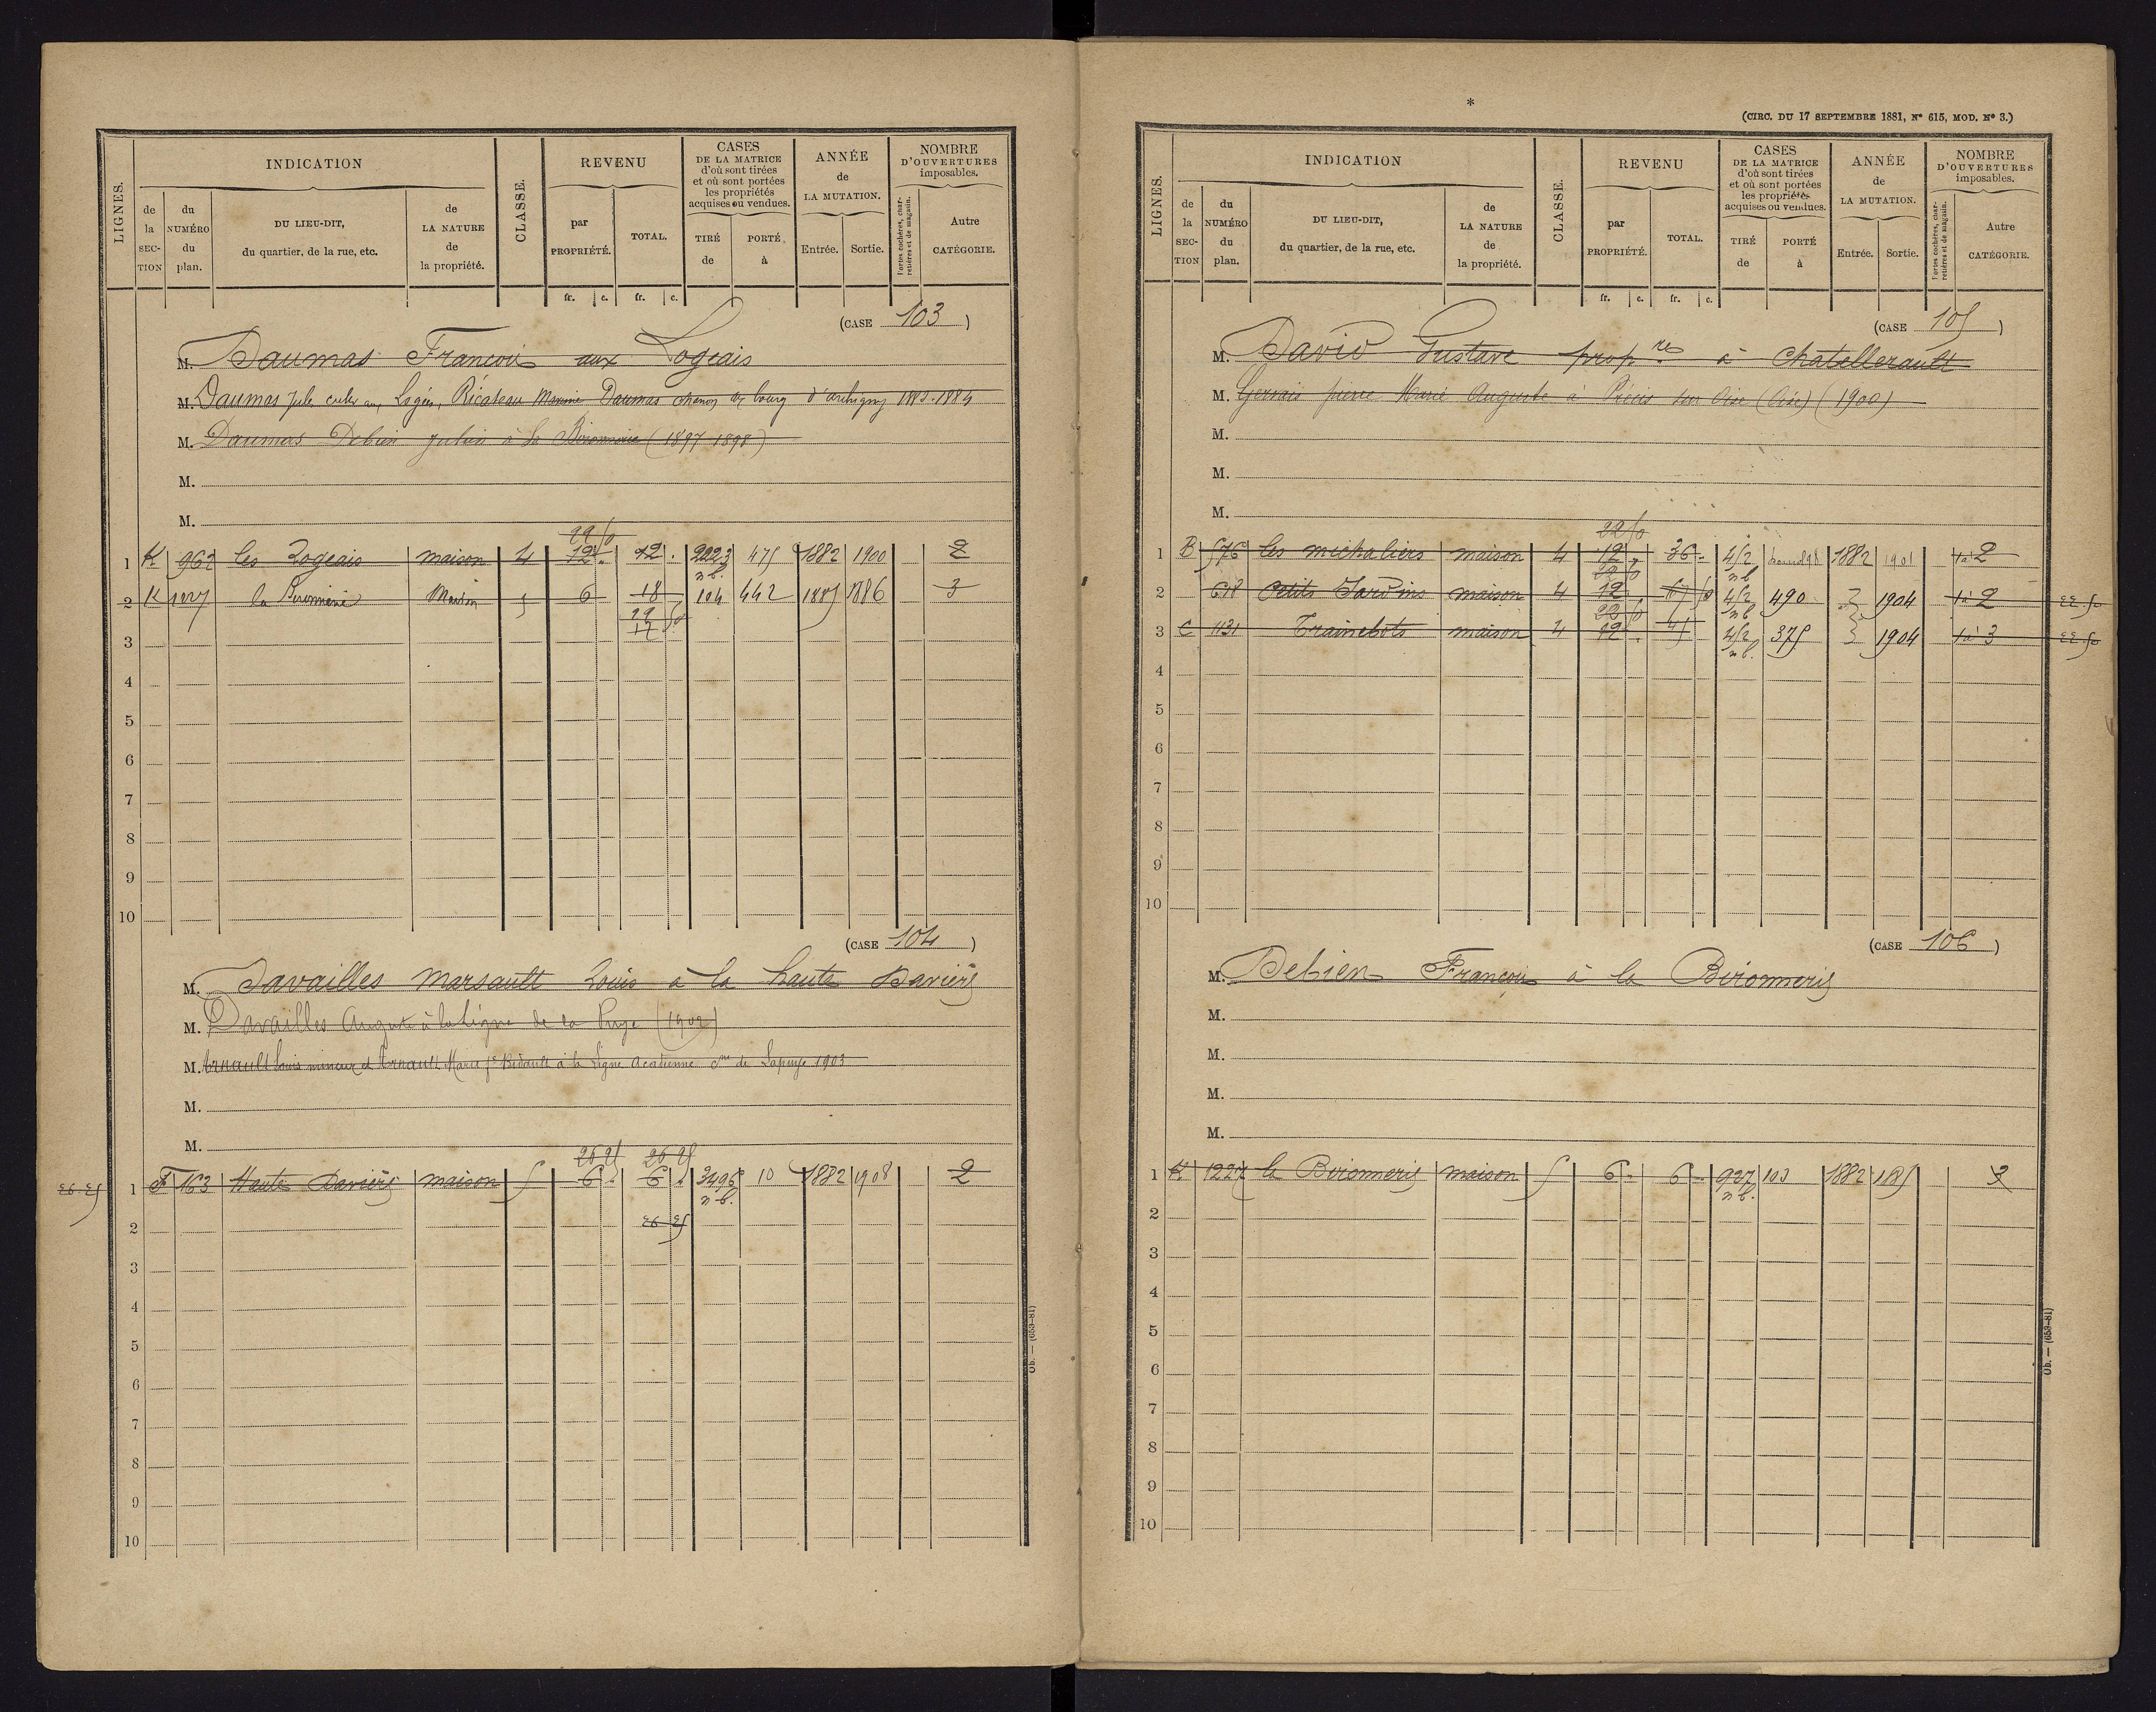 INDICATION
REVENU
CASES
DE LA MATRICE
d'où sont tirées
et où sont portées
les propriétés
acquises ou vendues.
ANNÉE
de
LA MUTATION.
NOMBRE
D'OUVERTURES
imposables.
LIGNES.
de la SECTION
du NUMÉRO du plan.
DU LIEU-DIT,
du quartier, de la rue, etc.
de LA NATURE de la propriété.
CLASSE.
par PROPRIÉTÉ.
TOTAL.
TIRÉ de
PORTÉ à
Entrée.
Sortie.
Portes cochères, charretières et de magasin.
Autre CATÉGORIE.
fr. c. fr. c.
(CASE 103)
M. Daumas François aux Logeais
M. Daumas Jules cult aux Logeais, Ricateau Maxime Daumas au bourg d'archigny 1883-1884
M. Daumas Debien Julien à la Bironnerie (1897-1898)
M.
M.
22 50
1 K 962 les Logeais maison 4 12 . 12 . 2023 475 1882 1900 2
n.b.
2 K 1227 la Bironnerie Maison 5 6 18 104 442 1885 1886 3
22 50
12
3
4
5
6
7
8
9
10
(CASE 104)
M. Davailles Marsault Louis à la haute Davière
M. Davailles Auguste à la Ligne de la Puye (1902)
M. Arnault Louis mineur et Arnault Marie fe Bidault à la Ligne Acadienne cne de Lapuye 1903
M.
M.
26 25 26 25
26.25 1 F 163 Haute Davière maison 5 6 . 6 . 3496 10 1882 1908 2
n.b.
2 26 25
3
4
5
6
7
8
9
10
Ob. — (653-81)
*
(CIRC. DU 17 SEPTEMBRE 1881, N° 615, MOD. N° 3.)
INDICATION
REVENU
CASES
DE LA MATRICE
d'où sont tirées
et où sont portées
les propriétés
acquises ou vendues.
ANNÉE
de
LA MUTATION.
NOMBRE
D'OUVERTURES
imposables.
LIGNES.
de la SECTION
du NUMÉRO du plan.
DU LIEU-DIT,
du quartier, de la rue, etc.
de LA NATURE de la propriété.
CLASSE.
par PROPRIÉTÉ.
TOTAL.
TIRÉ de
PORTÉ à
Entrée.
Sortie.
Portes cochères, charretières et de magasin.
Autre CATÉGORIE.
fr. c. fr. c.
(CASE 105)
M. David Gustave propre à Chatellerault
M. Gervais pierre Marie Auguste à Précis sur Oise (Oise) (1900)
M.
M.
M.
22 50
1 B 576 les michaliers maison 4 12 . 36 . 452 1882 1901 1à 2
22 50 n b
2 618 Petits Jardins maison 4 12 . 67 50 452 490 1904 1à 2 22.50
22 50 n b
3 C 1131 Trainebots maison 4 12 . 45 452 375 1904 1à 3 22.50
n b.
4
5
6
7
8
9
10
(CASE 106)
M. Debien François à la Bironnerie
M.
M.
M.
M.
1 K 1227 la Bironnerie maison 5 6 . 6 . 927 103 1882 1885 3
n.b.
2
3
4
5
6
7
8
9
10
Ob. — (653-81)